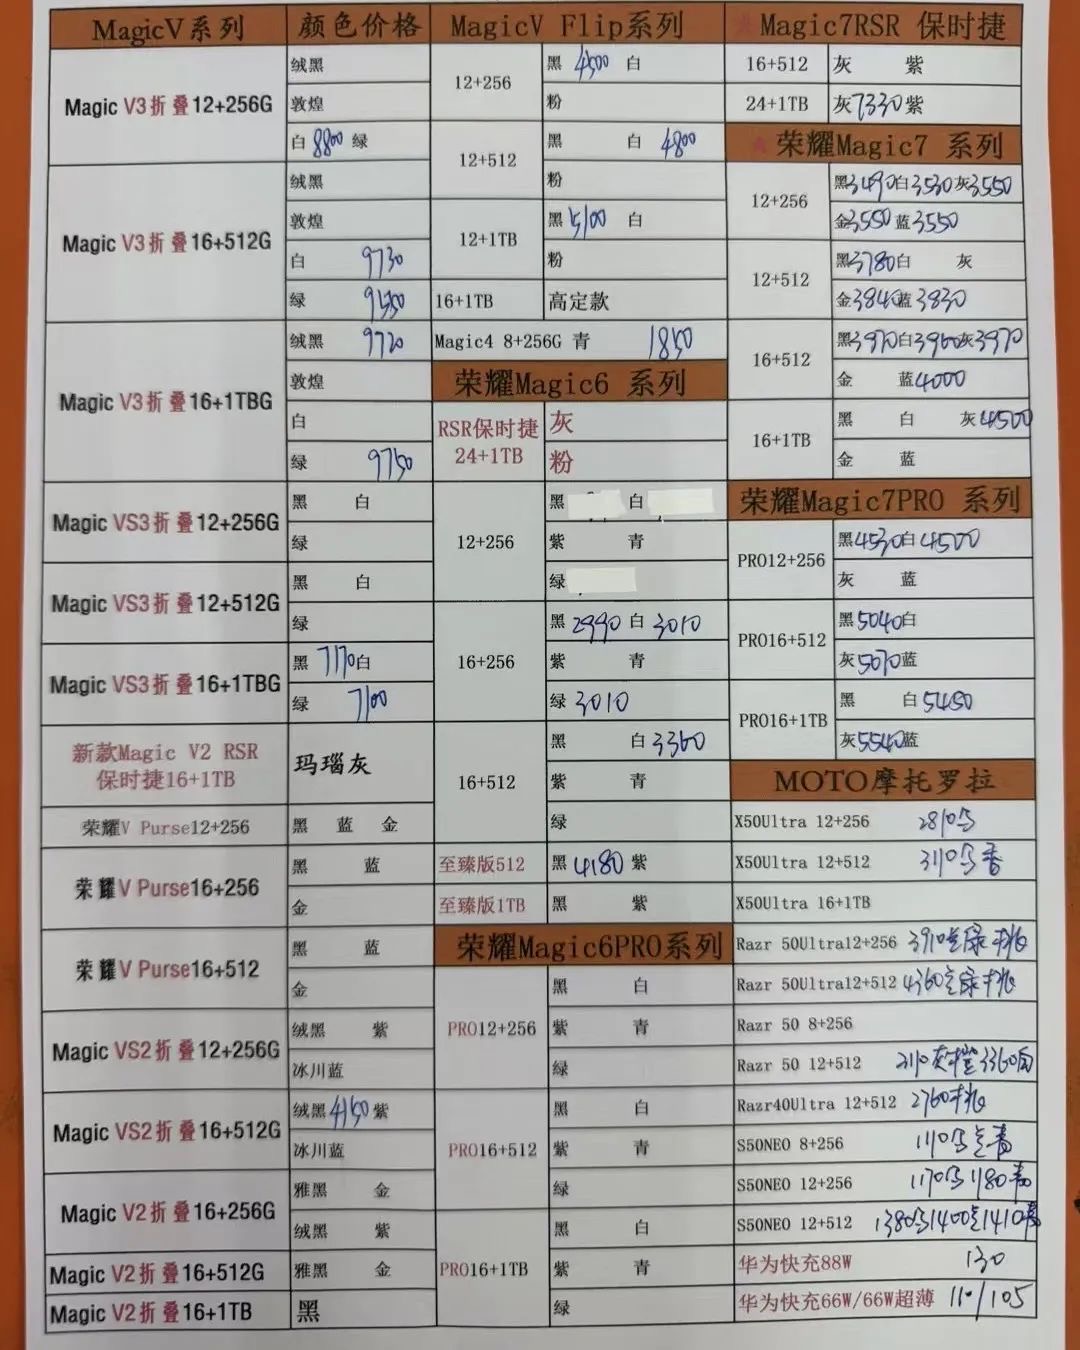 MagicV系列 颜色价格
Magic V3折叠12+256G
绒黑
敦煌
白 8800 绿
Magic V3折叠16+512G
绒黑
敦煌
白 9730
绿
Magic V3折叠16+1TBG
绒黑 9720
敦煌
白
绿 9750
Magic VS3折叠12+256G
黑 白
绿
Magic VS3折叠12+512G
黑 白
绿
Magic VS3折叠16+1TBG
黑 7170 白
绿 7100
新款Magic V2 RSR
保时捷16+1TB
玛瑙灰
荣耀V Purse12+256 黑 蓝 金
荣耀V Purse16+256
黑 蓝
金
荣耀V Purse16+512
黑 蓝
金
Magic VS2折叠12+256G
绒黑 紫
冰川蓝
Magic VS2折叠16+512G
绒黑 4150 紫
冰川蓝
Magic V2折叠16+256G
雅黑 金
绒黑 紫
Magic V2折叠16+512G 雅黑 金
Magic V2折叠16+1TB 黑
MagicV Flip系列
12+256
黑 4500 白
粉
12+512
黑 白 4800
粉
12+1TB
黑 5100 白
粉
16+1TB 高定款
Magic4 8+256G 青 1850
荣耀Magic6 系列
RSR保时捷
24+1TB
灰
粉
12+256
黑 白
紫 青
绿
16+256
黑 2990 白 3010
紫 青
绿 3010
16+512
黑 白 3360
紫 青
绿
至臻版512 黑 4180 紫
至臻版1TB 黑 紫
荣耀Magic6PRO系列
PRO12+256
黑 白
紫 青
绿
PRO16+512
黑 白
紫 青
绿
PRO16+1TB
黑 白
紫 青
绿
Magic7RSR 保时捷
16+512 灰 紫
24+1TB 灰 7330 紫
荣耀Magic7 系列
12+256
黑 3490 白 3530 灰 3550
金 3550 蓝 3550
12+512
黑 3780 白 灰
金 3840 蓝 3830
16+512
黑 3970 白 3960 灰 3970
金 蓝 4000
16+1TB
黑 白 灰 4500
金 蓝
荣耀Magic7PRO 系列
PRO12+256
黑 4530 白 4500
灰 蓝
PRO16+512
黑 5040 白
灰 5070 蓝
PRO16+1TB
黑 白 5450
灰 5540 蓝
MOTO摩托罗拉
X50Ultra 12+256 2810
X50Ultra 12+512 3110
X50Ultra 16+1TB
Razr 50Ultra12+256 3910
Razr 50Ultra12+512 4360
Razr 50 8+256
Razr 50 12+512 3360
Razr40Ultra 12+512 2760
S50NEO 8+256 1110
S50NEO 12+256 1170 1180
S50NEO 12+512 1380 1400 1410
华为快充88W 130
华为快充66W/66W超薄 110/105